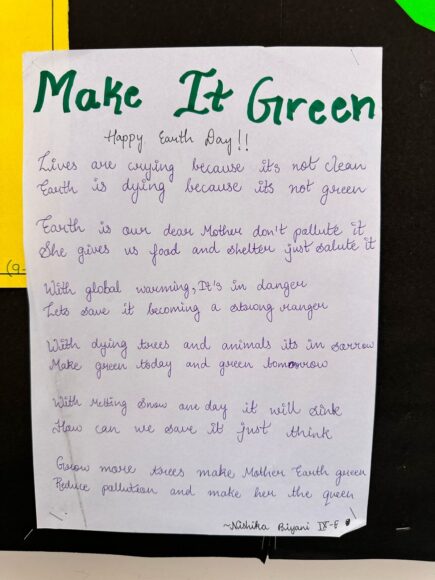 Make It Green
Happy Earth Day!!
Lives are crying because its not clean
Earth is dying because its not green
Earth is our dear Mother don't pallute it
She gives us food and shelter just salute it
With global warming, It's in danger
Lets save it becoming a strong ranger
With dying trees and animals its in sarrow
Make green today and green tomorrow
With Melting Snow one day it will sink
How can we save it just think
Grow more trees make Mother Earth green
Reduce pollution and make her the queen
~Nishika Biyani IX-E
(9-